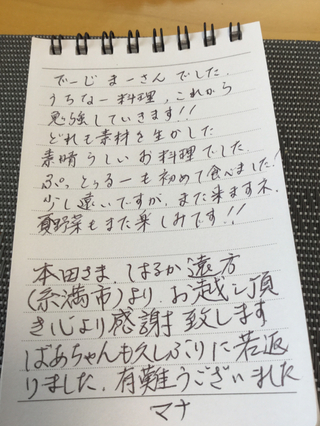 でーじ まーさん でした.
うちなー料理, これから
勉強していきます!!
どれも素材を生かした
素晴らしいお料理でした.
ぷっとぅるーも初めて食べました!
少し遠いですが, また来ますネ.
夏野菜もまた楽しみです!!
本田さま, はるか遠方
(糸満市)より お越し頂
き心より感謝致します
ばあちゃんも久しぶりに若返
りました. 有難うございました
マナ